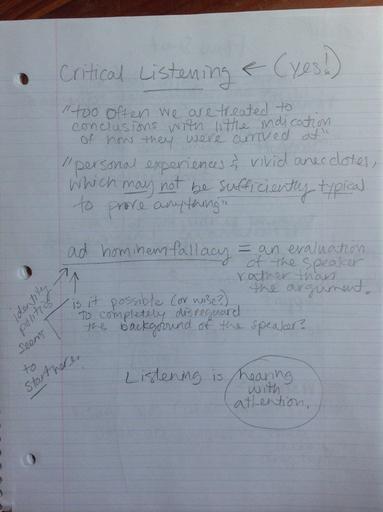 Critical Listening ← (yes!)
"too often we are treated to
conclusions with little indication
of how they were arrived at"
"personal experiences & vivid anecdotes,
which may not be sufficiently typical
to prove anything"
ad hominem fallacy = an evaluation
of the speaker
rather than
the argument.
identity
politics
seems
to
start here.
is it possible (or wise?)
to completely disreguard
the background of the speaker?
Listening is hearing
with
attention.